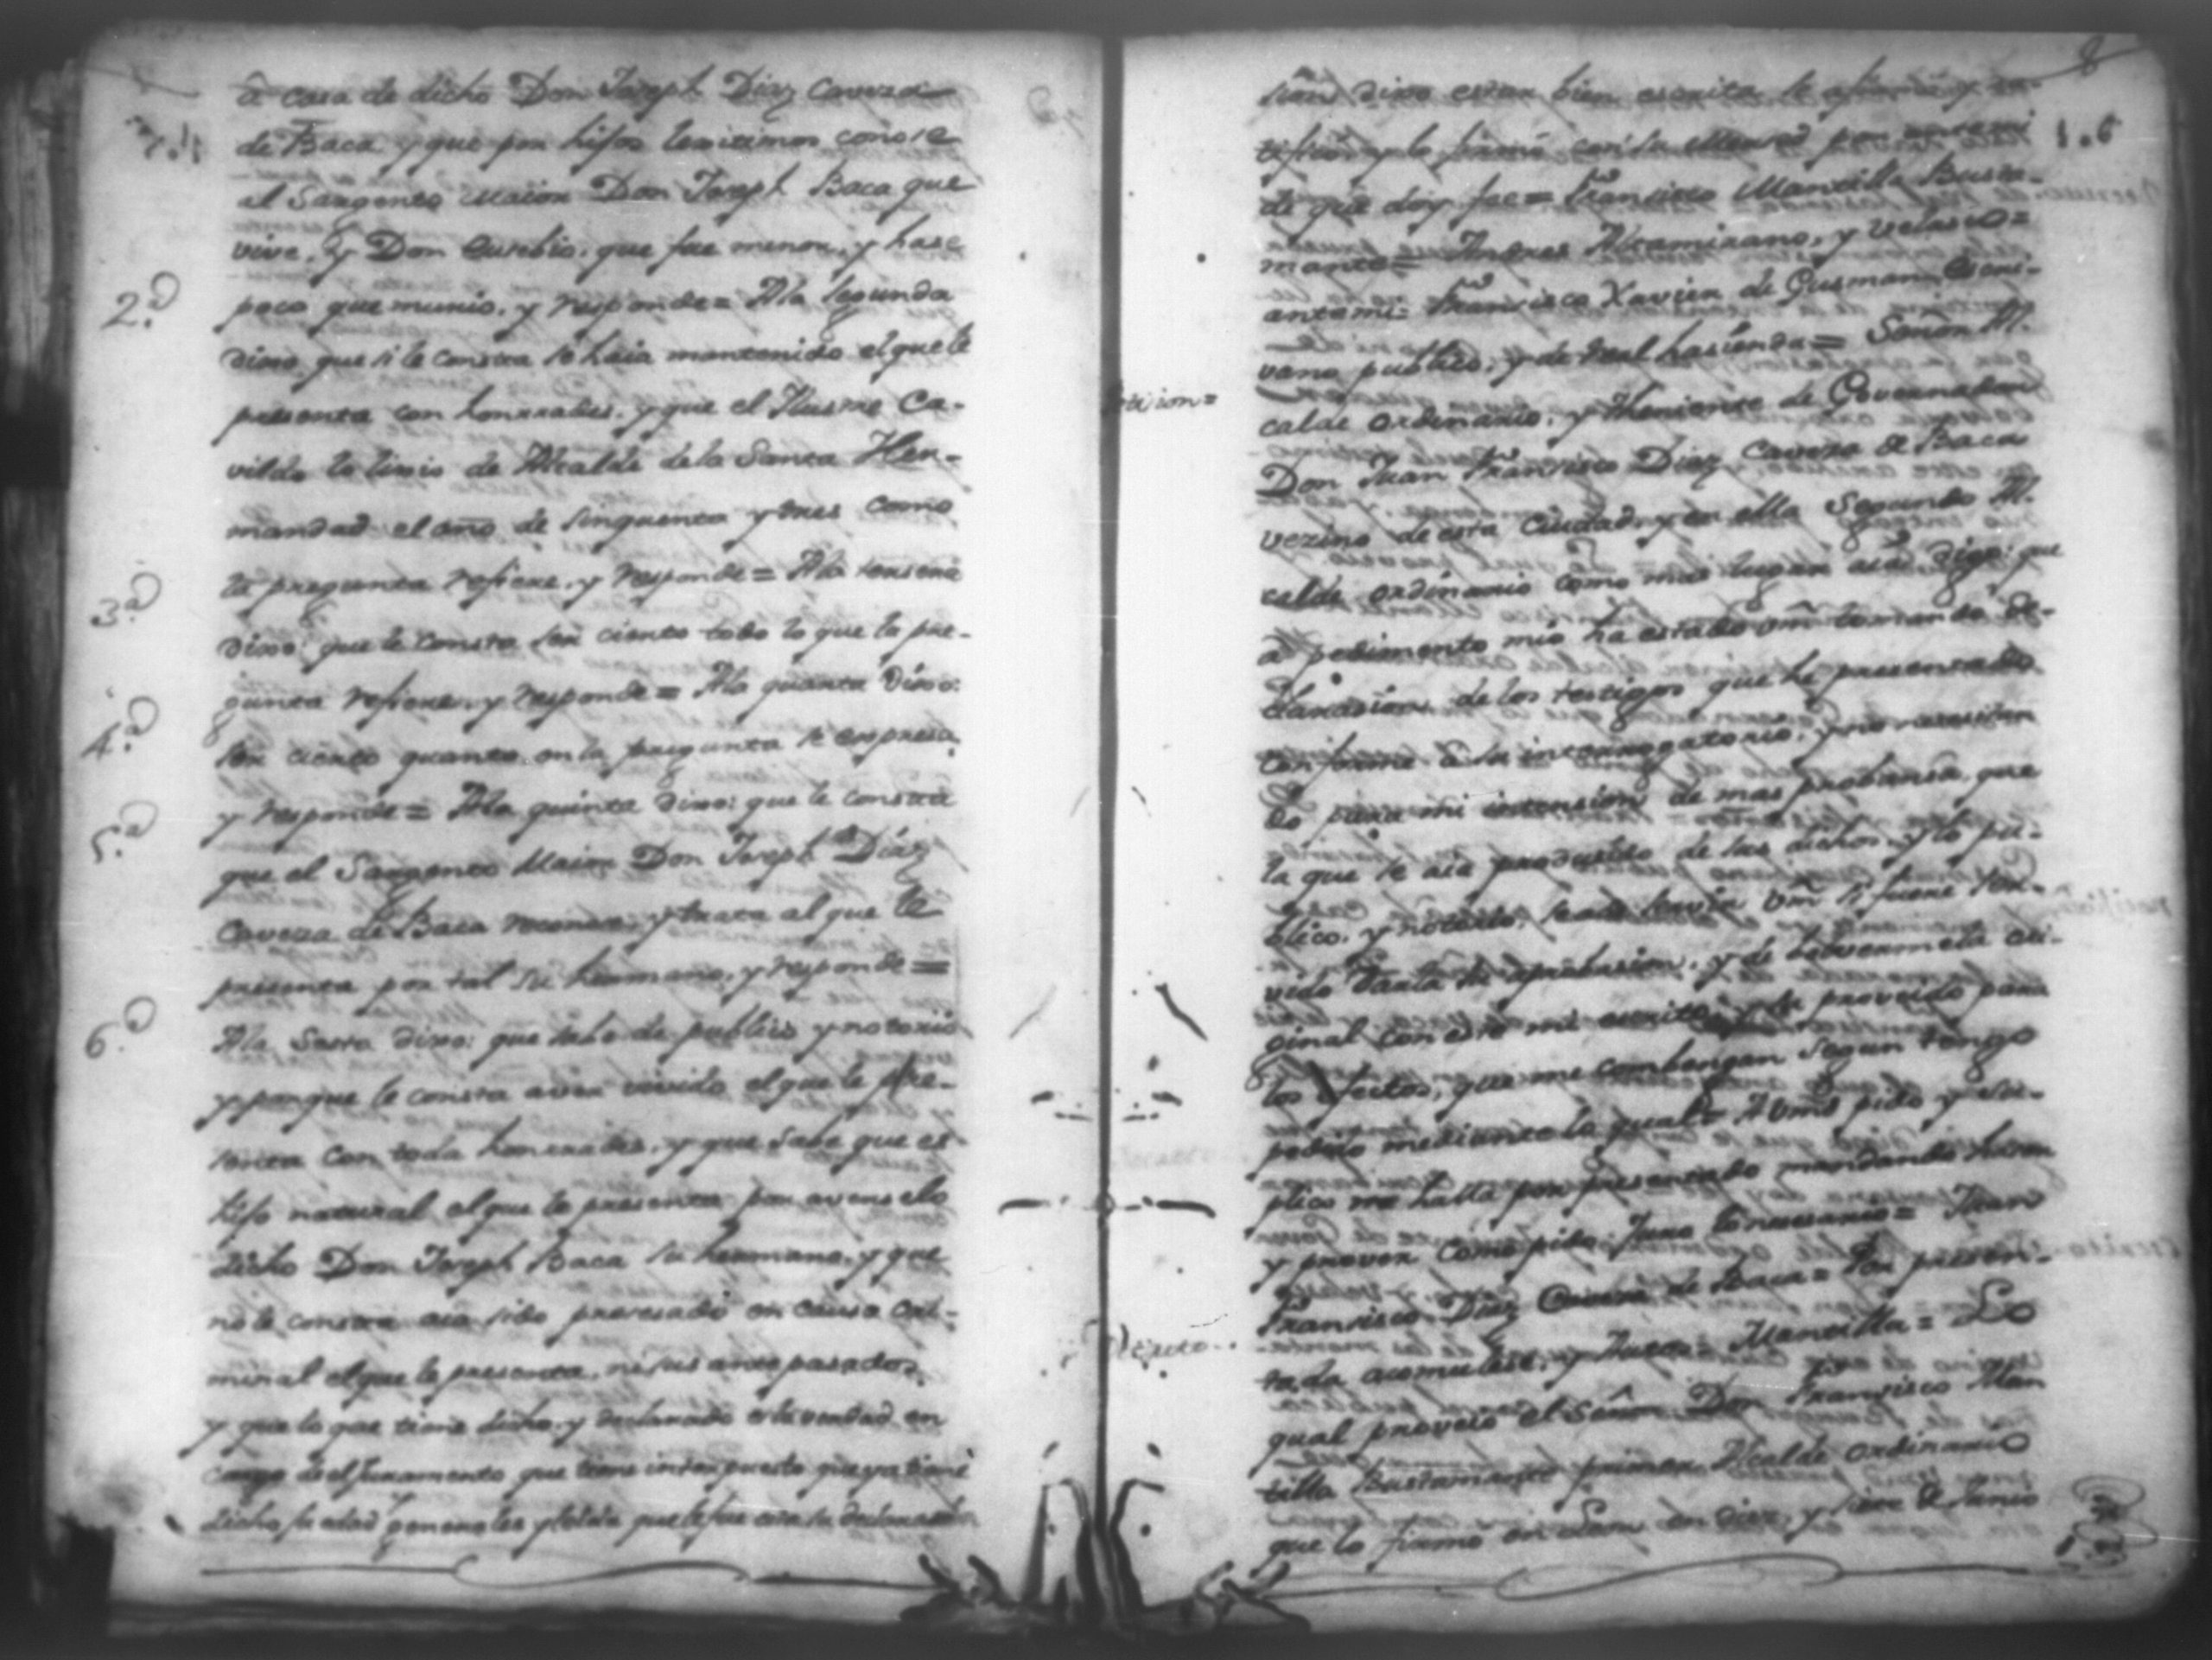 â casa de dicho Don Joseph Diaz Caveza
de Baca y que por hijos lexitimos conose
al Sargento maior Don Joseph Baca que
vive, y Don Eusebio, que fue menor, y hase
2.a
poco que murio, y responde= Ala segunda
dixo que si le consta se haia mantenido el que le
presenta con honrrades, y que el Ilustre Ca-
vildo lo de Alcalde de la Santa Her-
mandad el año de sinquenta y tres como
3.a
la pregunta refiere, y responde= Ala tersera
dixo: que le consta ser cierto todo lo que la pre-
4.a
gunta refiere, y responde= Ala quarta dixo:
ser cierto quanto en la pregunta se expresa,
5.a
y responde= Ala quinta dixo: que le consta
que el Sargento Maior Don Joseph Diaz
Caveza de Baca reconose, y trata al que le
presenta por tal su hermano, y responde=
6.a
Ala Sexta dixo: que sabe de publico y notorio
y porque le consta aver vivido el que le pre-
senta con toda honrrades, y que sabe que es
hijo natural el que le presenta por
dicho Don Joseph Baca su hermano, y que
no le consta aia sido procesado en causa cri-
minal el que le presenta, ni sus antepasados,
y que lo que tiene dicho, y declarado es la verdad en
cargo de el juramento que tiene interpuesto que ya tiene
dicho su edad y generales y leida que le fue esta su declarasi
8
1.6
sion dixo estar bien escrita se afirmó y ra-
tificó y lo firmó con su Merced por ante mi
de que doy fee= Fransisco Mantilla Busta-
mante= Andres Altamirano, y Velasco=
antemi= Fransisco Xavier de Gusman Escri-
vano publico, y de Real hasienda= Señor Al-
Petision=
calde ordinario, y Theniente de Governador
Don Juan Fransisco Diaz Caveza de Baca
vezino de esta Ciudad, y en ella Segundo Al-
calde ordinario como mas lugar aia digo: que
a pedimento mio ha estado Vm̃ tomando de-
claracion de los testigos que he presentado
conforme â su interrogatorio, y no nesesitan
do para mi intension de mas probansa, que
la que se aia produsido de las dichos, y lo pu-
blico, y notorio, se ade servir Vm̃ si fuere ser-
vido darla su aprobasion, y de bolvermela ori-
ginal con este mi escrito, y su proveido para
los efectos, que me combengan segun tengo
pedido mediante lo qual= A Vmd pido y su-
plico me halla por presentado mandando haser
y prover como pido. Juro lo nesesario= Juan
Fransisco Diaz Caveza de Baca= Por presen-
Decreto
tada acomulese, y Autos= Mantilla= Lo
qual proveio el Señor Don Fransisco Man
tilla Bustamante primer Alcalde ordinario
que lo firmó en Leon en dies, y siete de Junio